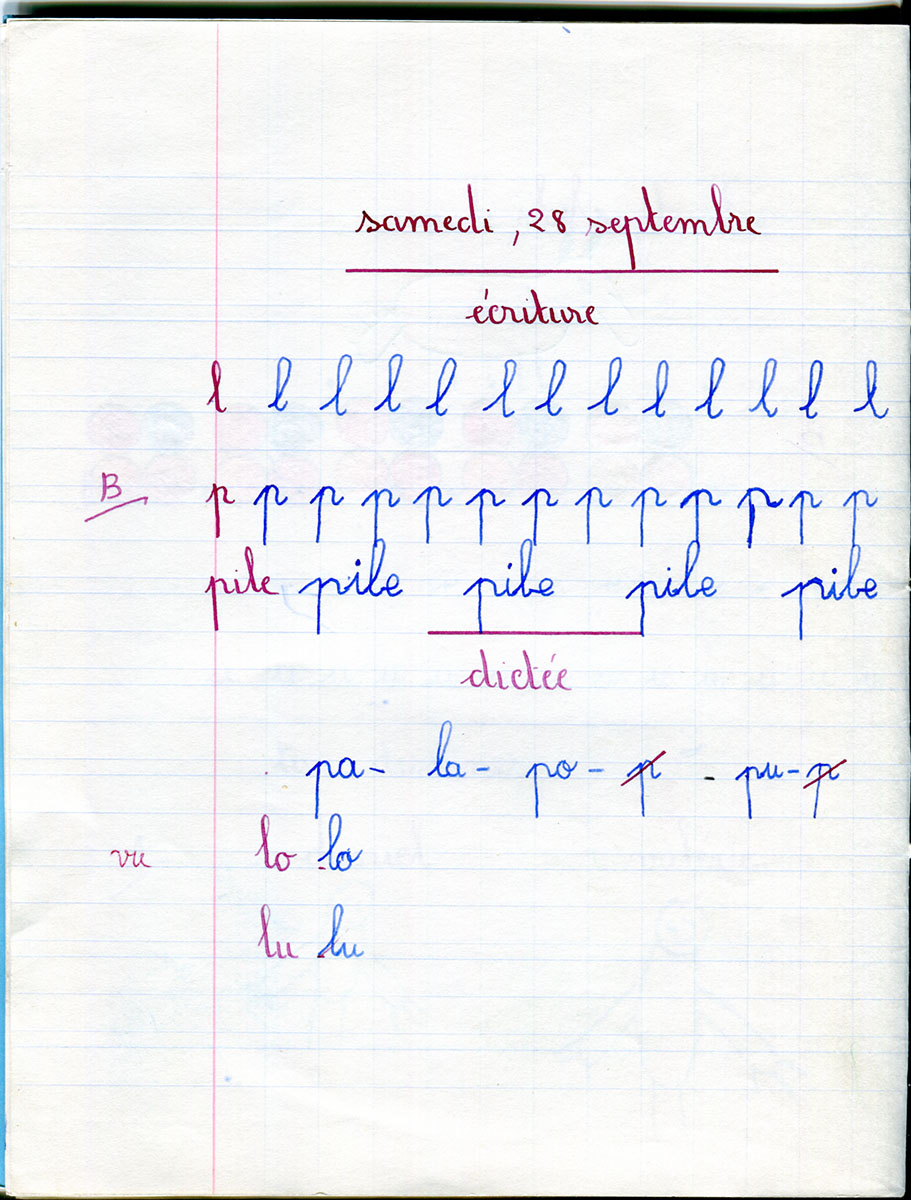 samedi, 28 septembre
écriture
l l l l l l l l l l l l l
B p p p p p p p p p p p p p
pile pile pile pile pile
dictée
pa - la - po - p - pu - p
vu lo lo
lu lu